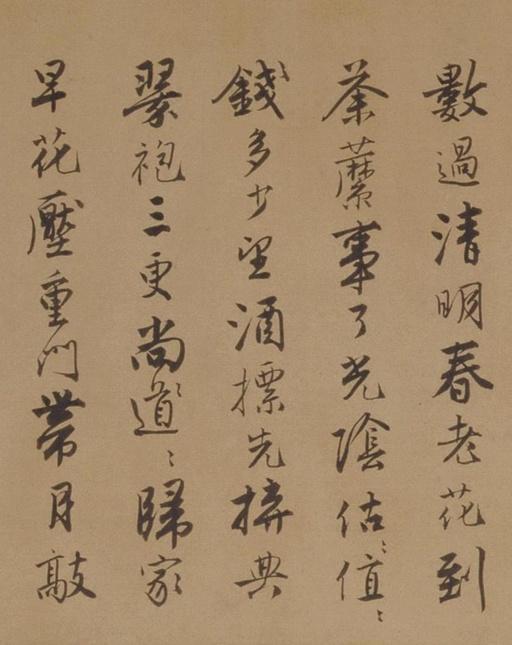 數過清明春老花到
荼蘼事了光陰估〻值〻
錢多少望酒標先拚典
翠袍三更尚道〻歸家
早花壓重門帶月敲